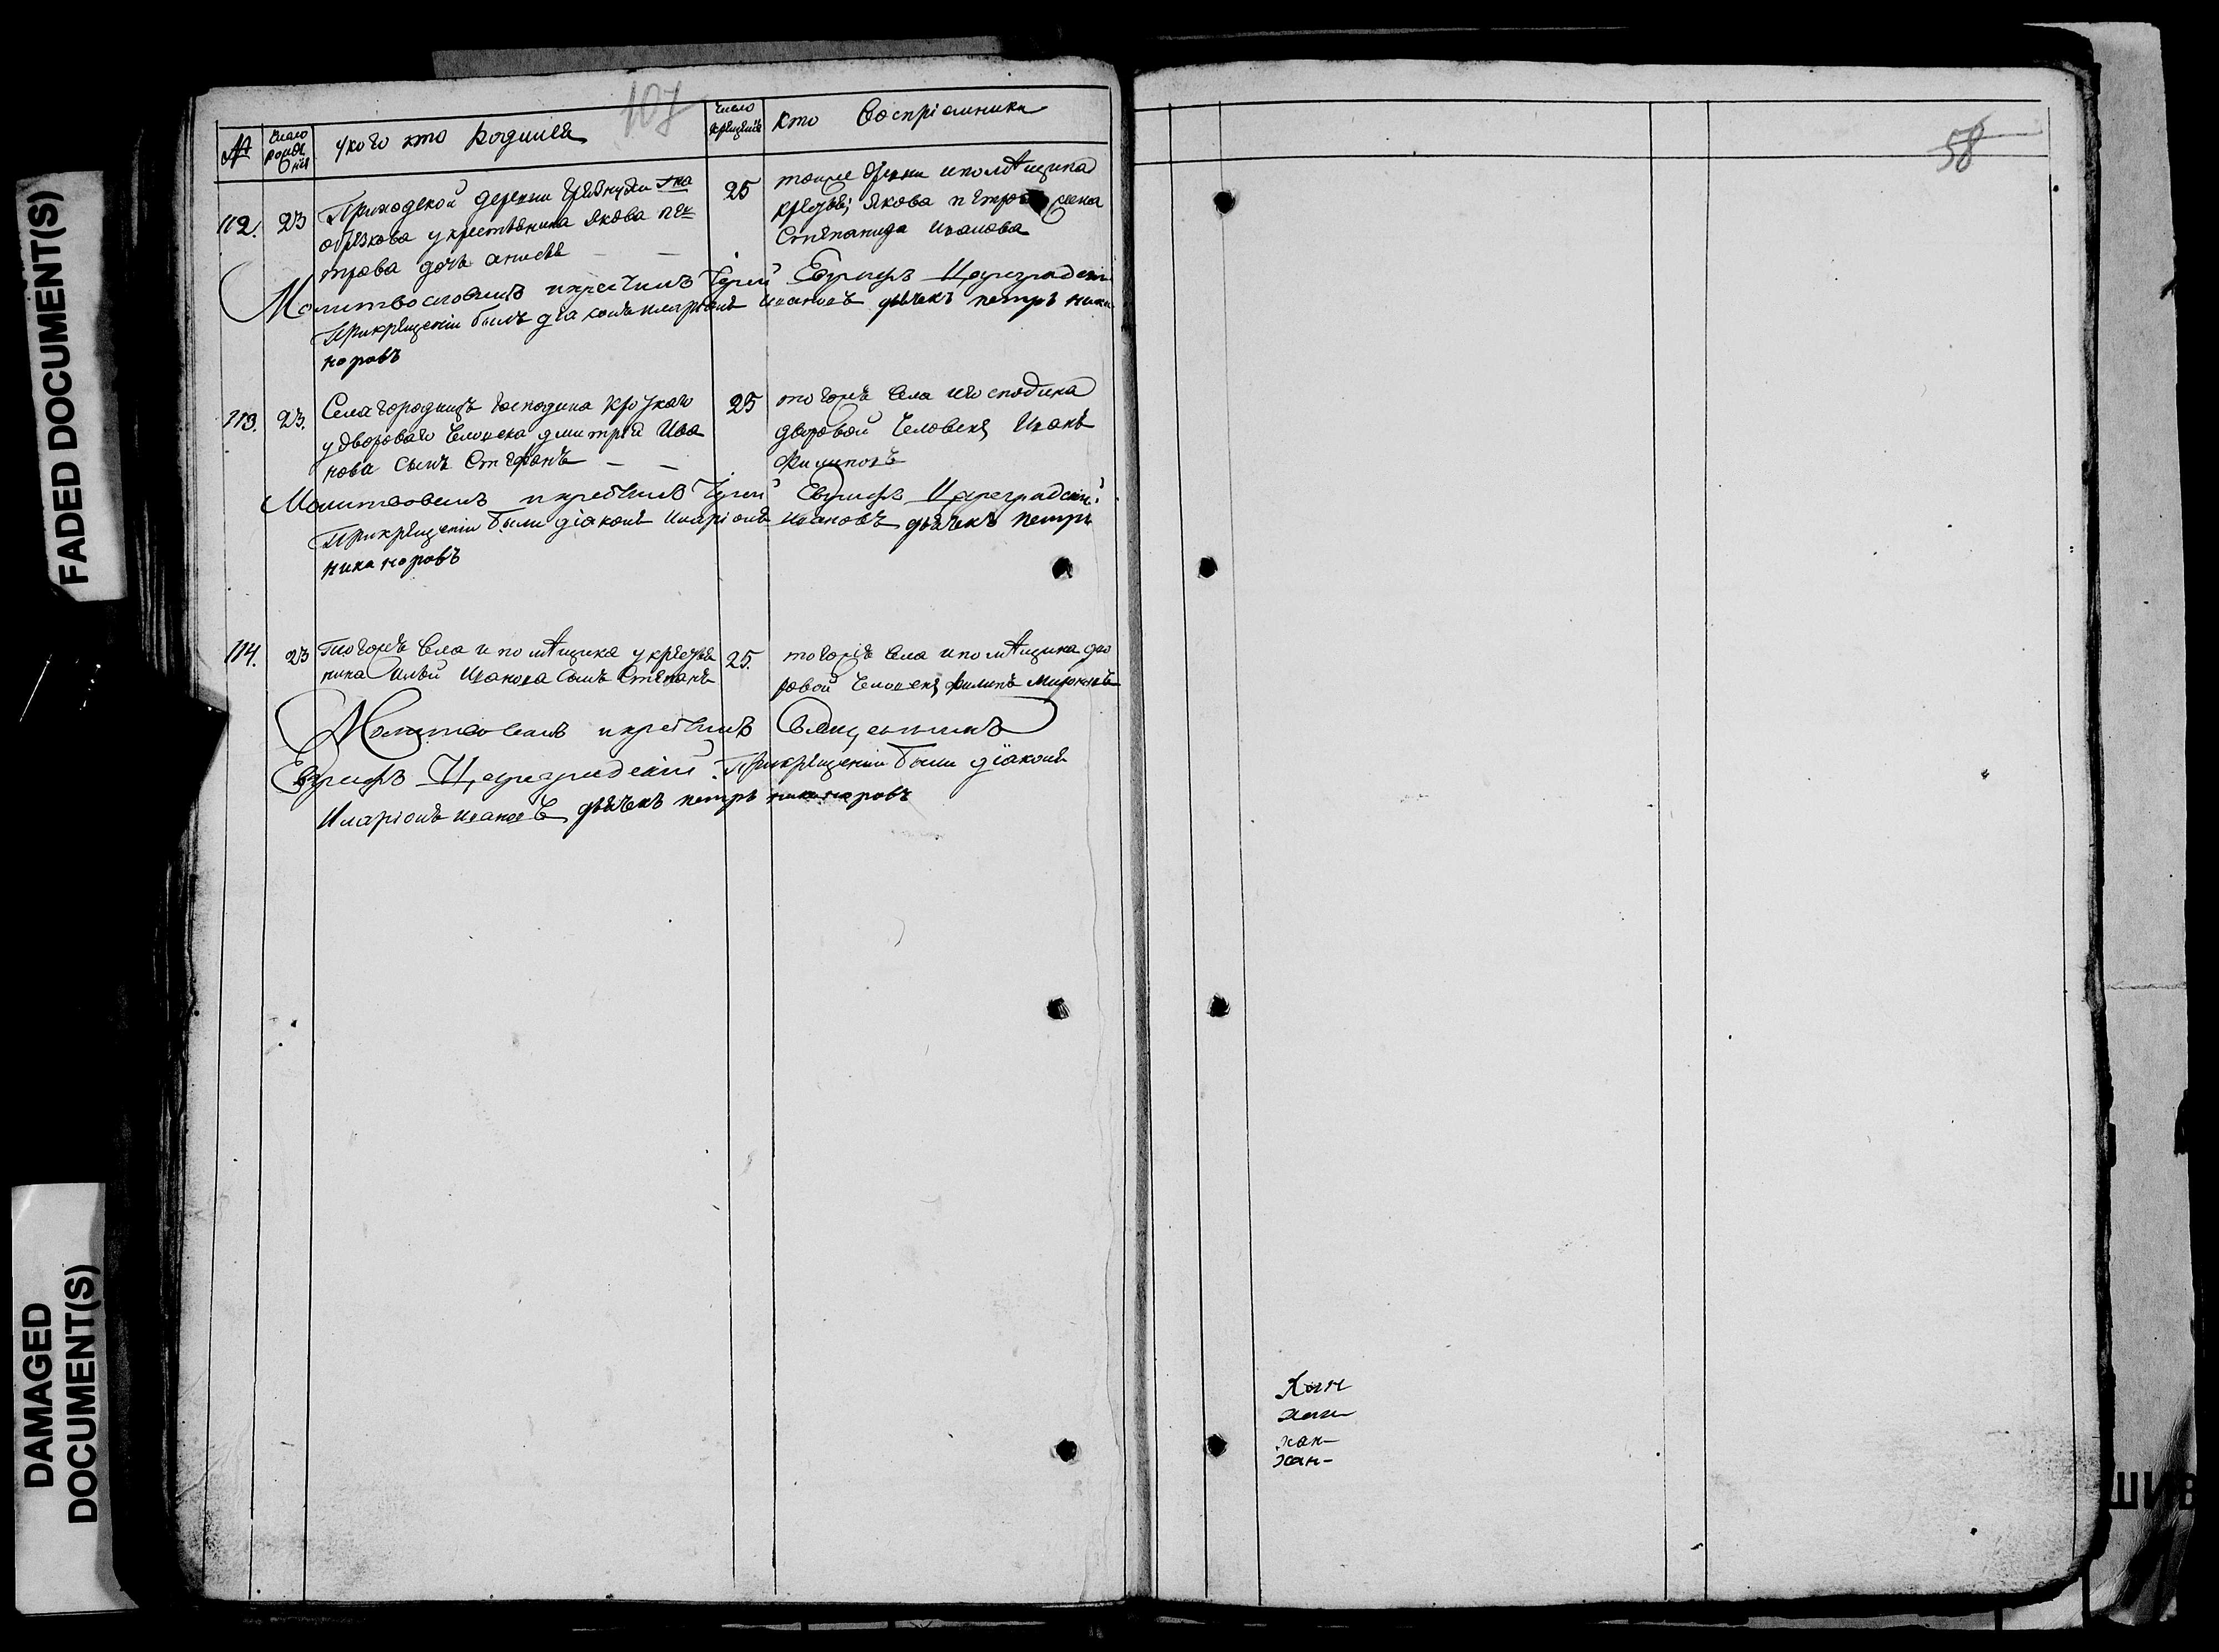 FADED DOCUMENT(S)
DAMAGED
DOCUMENT(S)
107
58
№
Число
рожде
нія
у кого кто родился
Число
крещенія
Кто Воспріемники
112.
23
Приходской деревни
у крестьянина Якова пе
трова дочь
25
тоиже
Якова петрова жена
Степанида иванова
Молитвословилъ икрестилъ Іерей Евграфъ Цареградскій
Прикрещеніи былъ діаконъ иларіонъ ивановъ дьячекъ петръ ника
норовъ
113.
23.
Села городищъ Господина
удвороваго человека дмитрія Ива
нова сынъ Стефанъ
25
тогожъ села игосподина
дворовой человекъ Иванъ
Филиповъ
Молитвовалъ икрестилъ Іерей Евграфъ Цареградскій
Прикрещеніи были діаконъ Иларіонъ ивановъ дьячекъ петръ
никаноровъ
114.
23
тогожъ села ипомѣщика укрестья
нина Иванова сынъ Степанъ
25.
тогожъ села ипомѣщика дво
ровой человекъ филипъ мироновъ
Молитвовалъ икрестилъ Священникъ
Евграфъ Цареградскій. Прикрещеніи были діаконъ
Иларіонъ ивановъ дьячекъ петръ никаноровъ
хан-
хан-
ШИВ